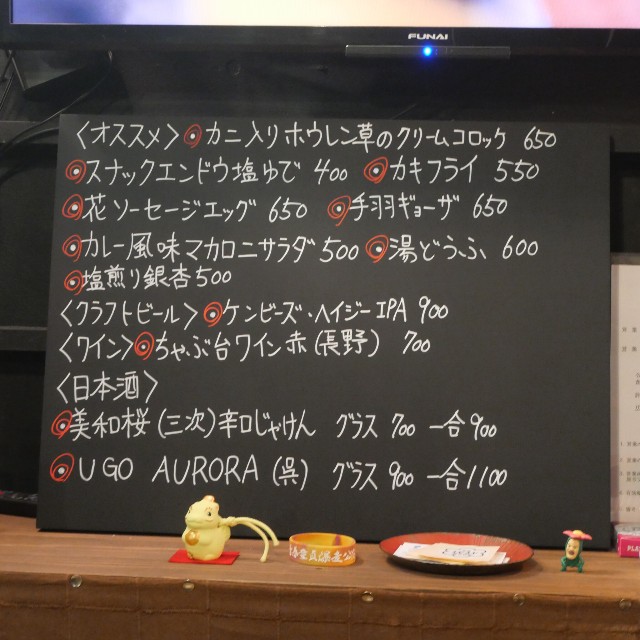 FUNAI
〈オススメ〉◎カニ入リホウレン草のクリームコロッケ 650
◎スナックエンドウ塩ゆで 400 ◎カキフライ 550
◎花ソーセージエッグ 650 ◎手羽ギョーザ 650
◎カレー風味マカロニサラダ 500 ◎湯どうふ 600
◎塩煎り銀杏 500
〈クラフトビール〉◎ケンビーズ・ヘイジーIPA 900
〈ワイン〉◎ちゃぶ台ワイン赤(長野) 700
〈日本酒〉
◎美和桜(三次)辛口じゃけん グラス 700 一合 900
◎UGO AURORA(呉) グラス 900 一合 1100